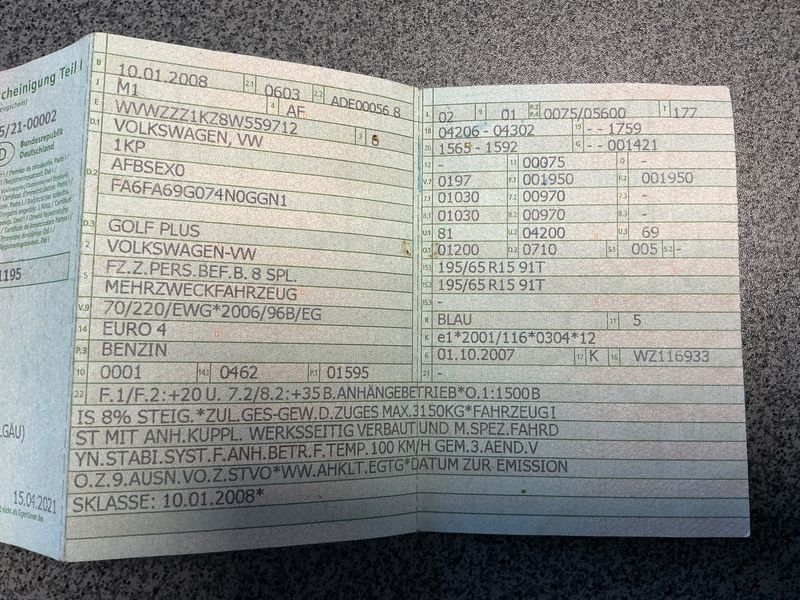 cheinigung Teil I
5/21-00002
D
Bundesrepublik
Deutschland
1195
LGÄU)
15.04.2021
B 10.01.2008 2.1 0603 2.2 ADE00056 8
J M1 4 AF
E WVWZZZ1KZ8W559712 3 6
D.1 VOLKSWAGEN, VW
1KP
D.2 AFBSEX0
FA6FA69G074N0GGN1
D.3 GOLF PLUS
2 VOLKSWAGEN-VW
5 FZ.Z.PERS.BEF.B. 8 SPL.
MEHRZWECKFAHRZEUG
V.9 70/220/EWG*2006/96B/EG
14 EURO 4
P.3 BENZIN
10 0001 14.1 0462 P.1 01595
L 02 9 01 P.2 P.4 0075/05600 T 177
18 04206 - 04302 19 - - 1759
20 1565 - 1592 G - -001421
12 - 13 00075 Q -
V.7 0197 F.1 001950 F.2 001950
7.1 01030 7.2 00970 7.3 -
8.1 01030 8.2 00970 8.3 -
U.1 81 U.2 04200 U.3 69
O.1 01200 O.2 0710 S.1 005 S.2 -
15.1 195/65 R15 91T
15.2 195/65 R15 91T
15.3 -
R BLAU 11 5
K e1*2001/116*0304*12
6 01.10.2007 17 K 16 WZ116933
21 -
22 F.1/F.2:+20 U. 7.2/8.2:+35 B.ANHÄNGEBETRIEB*O.1:1500 B
IS 8% STEIG.*ZUL.GES-GEW.D.ZUGES MAX.3150KG*FAHRZEUG I
ST MIT ANH.KUPPL. WERKSSEITIG VERBAUT UND M.SPEZ.FAHRD
YN.STABI.SYST.F.ANH.BETR.F.TEMP.100 KM/H GEM.3.AEND.V
O.Z.9.AUSN.VO.Z.STVO*WW.AHKLT.EGTG*DATUM ZUR EMISSION
SKLASSE: 10.01.2008*